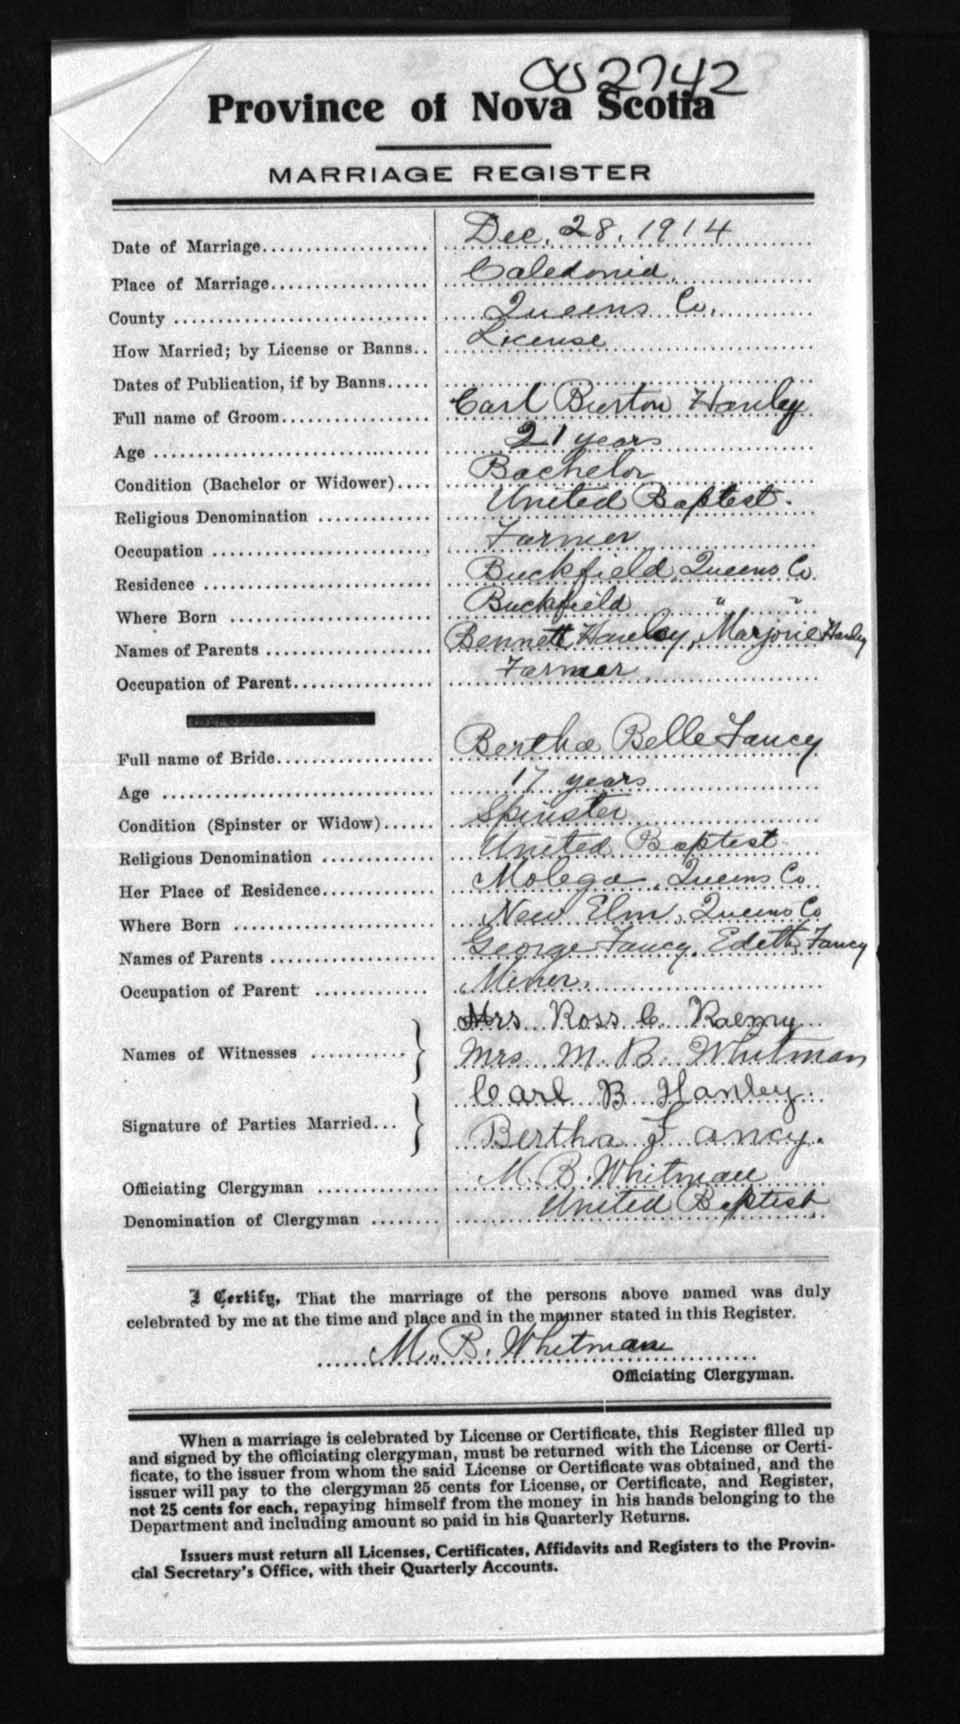 002742
Province of Nova Scotia
MARRIAGE REGISTER
Date of Marriage Dec. 28, 1914
Place of Marriage Caledonia
County Queens Co.
How Married; by License or Banns License
Dates of Publication, if by Banns
Full name of Groom Carl Burton Hanley
Age 21 years
Condition (Bachelor or Widower) Bachelor
Religious Denomination United Baptist.
Occupation Farmer
Residence Buckfield, Queens Co
Where Born Buckfield " "
Names of Parents Bennett Hanley, Marjorie Hanley
Occupation of Parent Farmer
Full name of Bride Bertha Belle Fancy
Age 17 years
Condition (Spinster or Widow) Spinster
Religious Denomination United Baptist
Her Place of Residence Molega, Queens Co
Where Born New Elm, Queens Co
Names of Parents George Fancy, Edith Fancy
Occupation of Parent Miner.
Mrs Ross C.
Names of Witnesses Mrs. M. B. Whitman
Carl B Hanley
Signature of Parties Married Bertha Fancy.
Officiating Clergyman M. B. Whitman
Denomination of Clergyman United Baptist
I Certify, That the marriage of the persons above named was duly
celebrated by me at the time and place and in the manner stated in this Register.
M. B. Whitman
Officiating Clergyman.
When a marriage is celebrated by License or Certificate, this Register filled up
and signed by the officiating clergyman, must be returned with the License or Certi-
ficate, to the issuer from whom the said License or Certificate was obtained, and the
issuer will pay to the clergyman 25 cents for License, or Certificate, and Register,
not 25 cents for each, repaying himself from the money in his hands belonging to the
Department and including amount so paid in his Quarterly Returns.
Issuers must return all Licenses, Certificates, Affidavits and Registers to the Provin-
cial Secretary's Office, with their Quarterly Accounts.